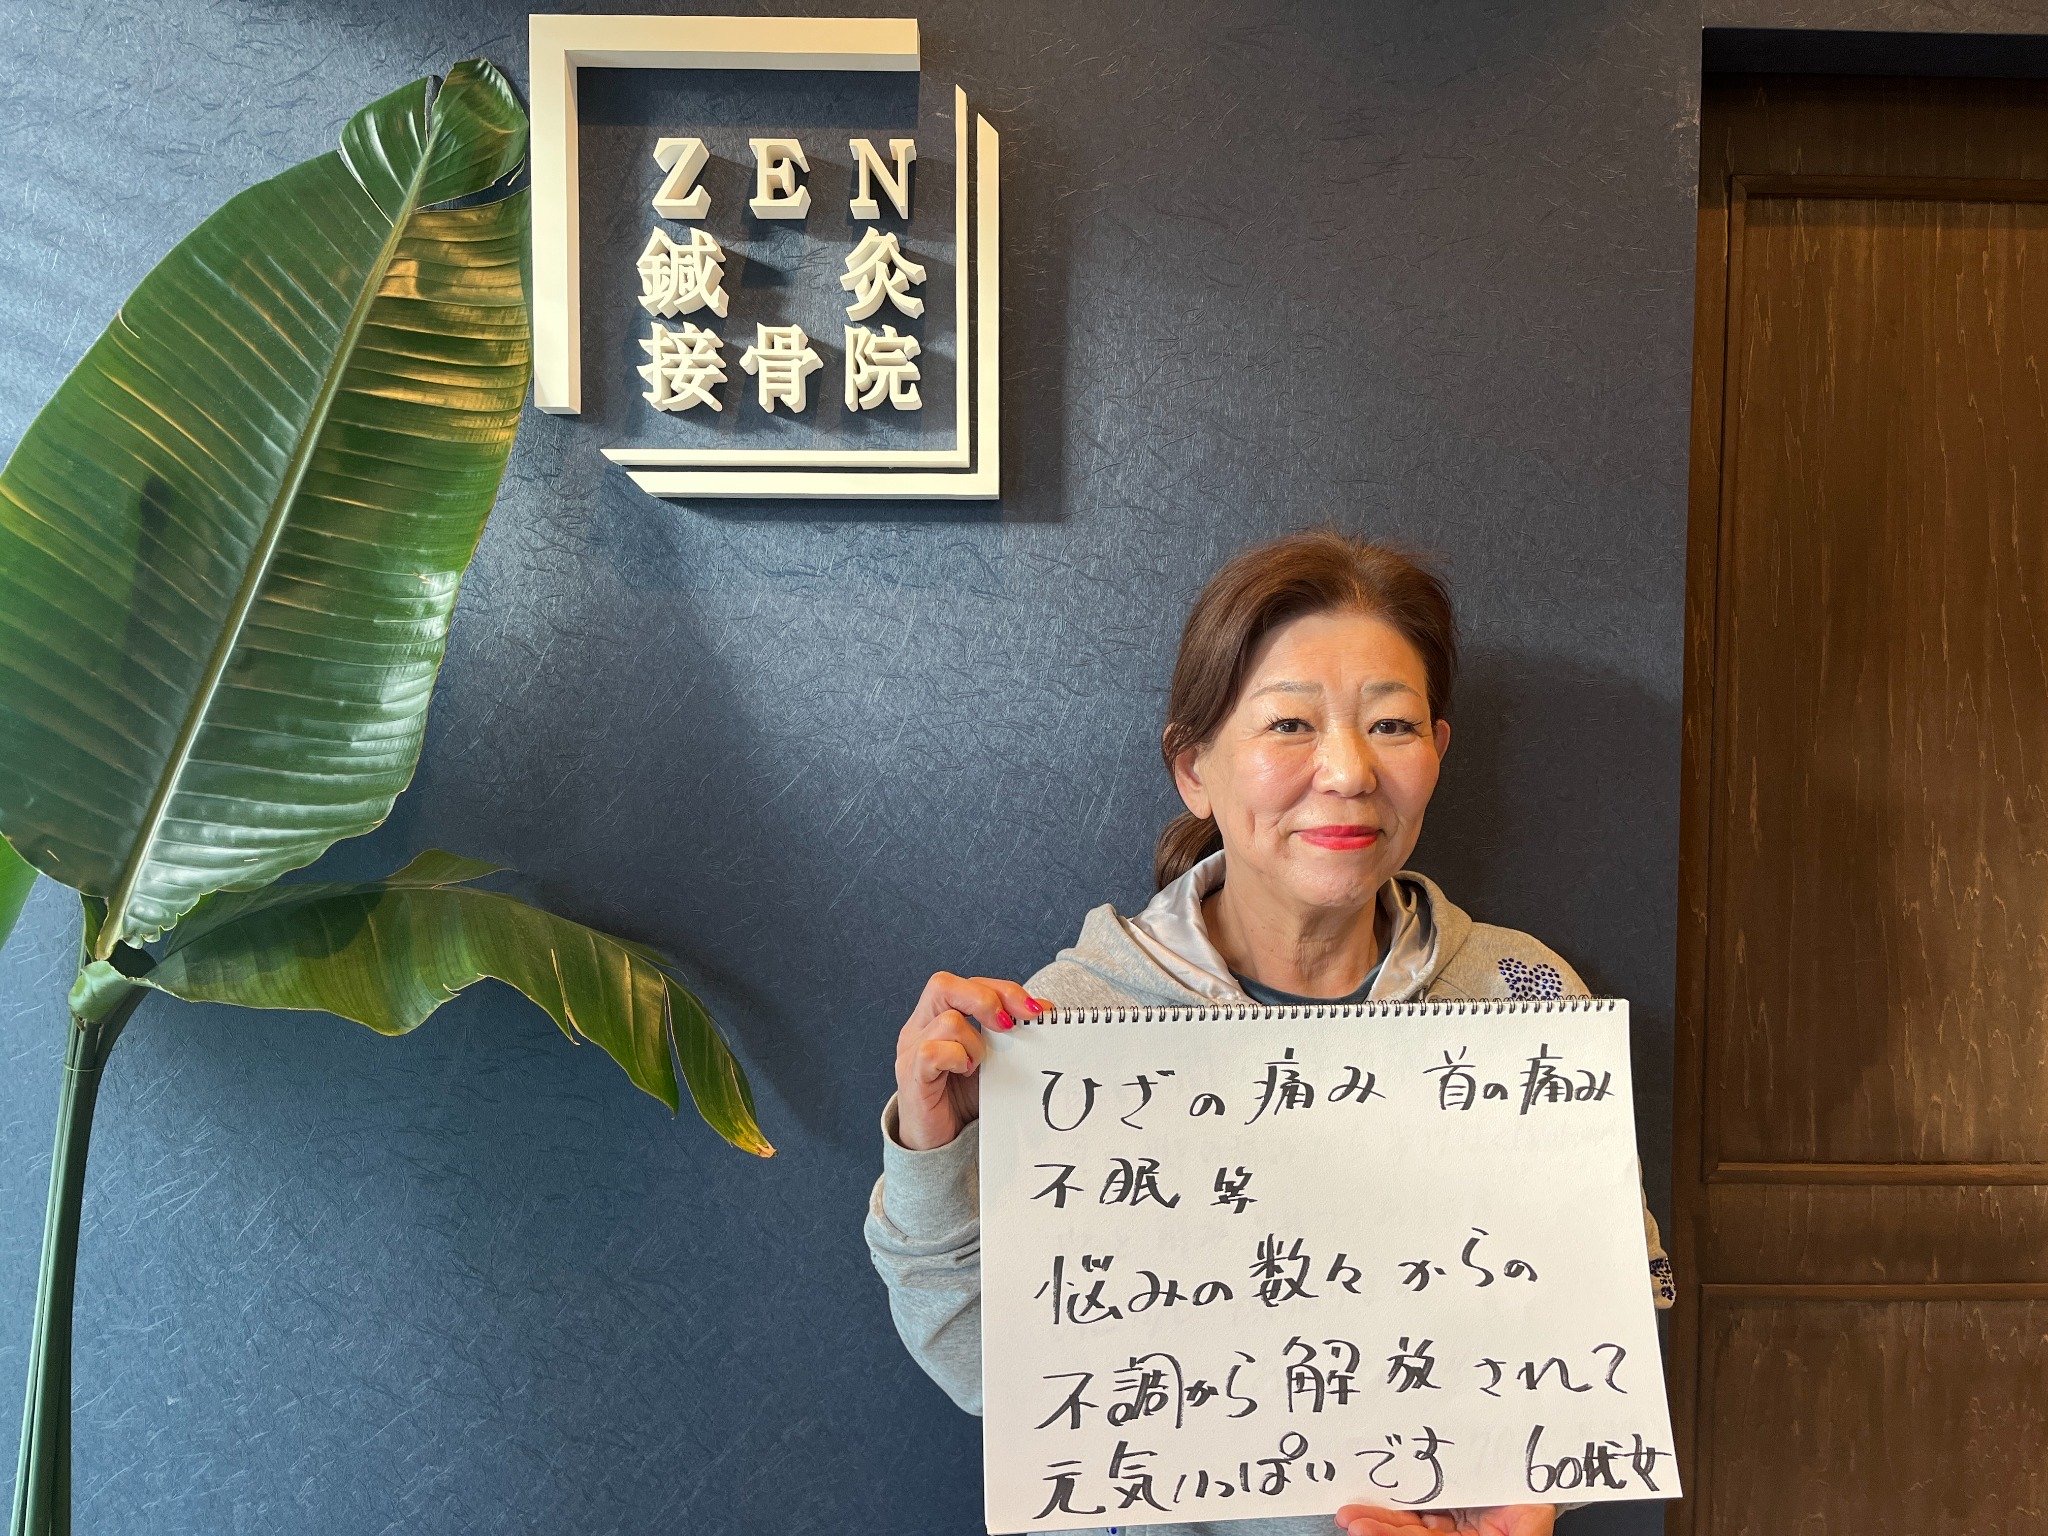 ZEN
鍼灸
接骨院
ひざの痛み 首の痛み
不眠 等
悩みの数々からの
不調から解放されて
元気いっぱいです 60代女